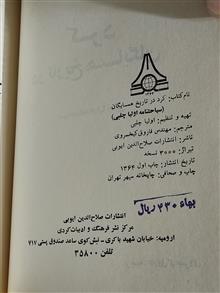 نام کتاب: کرد در تاریخ همسایگان
(سیاحتنامه اولیا چلبی)
تهیه و تنظیم: اولیا چلبی
مترجم: مهندس فاروق کیخسروی
ناشر: انتشارات صلاح‌الدین ایوبی
تیراژ: ۳۰۰۰ نسخه
تاریخ انتشار: چاپ اول ۱۳۶۴
چاپ و صحافی: چاپخانه سپهر تهران
بهاء ۲۳۰ ریال
انتشارات صلاح‌الدین ایوبی
مرکز نشر فرهنگ و ادبیات کردی
ارومیه: خیابان شهید باکری - نبش کوی ساعد صندوق پستی ۷۱۷
تلفن ۳۵۸۰۰